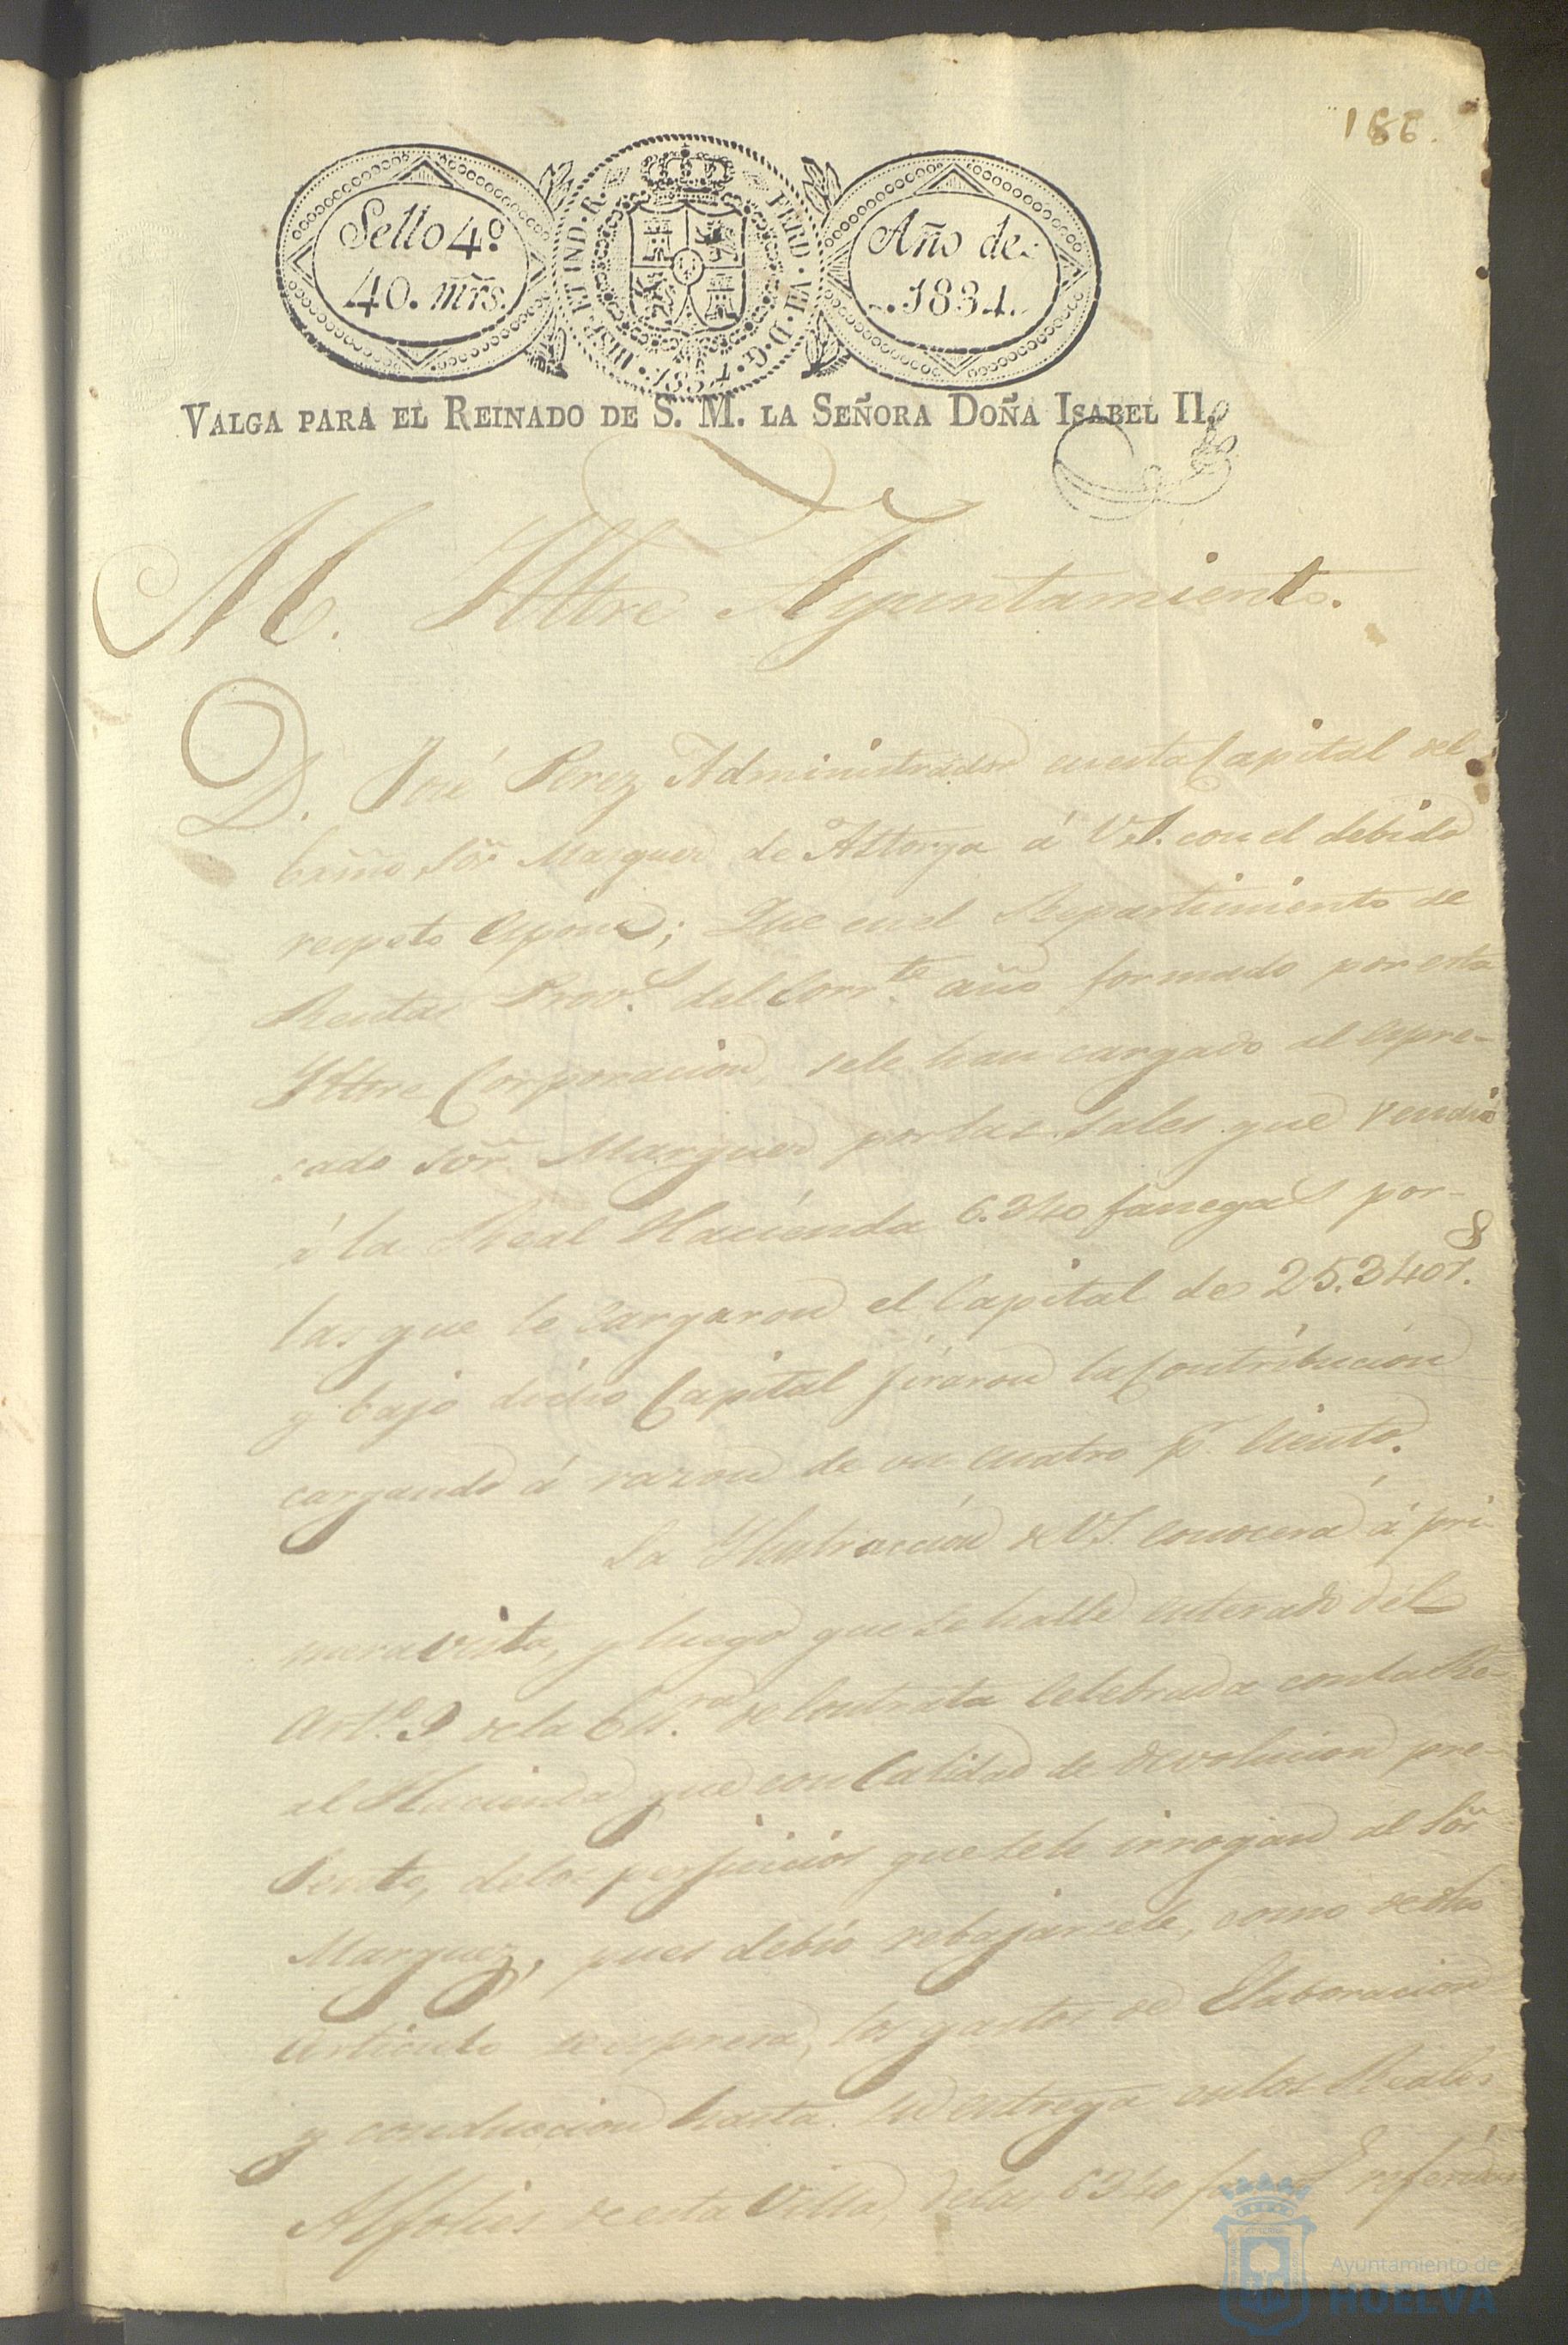 186.
Sello 4º
40. mrs.
HISP. ET IND. R.
FERD. VII. D. G.
1834.
Año de
1834.
VALGA PARA EL REINADO DE S. M. LA SEÑORA DOÑA ISABEL II.
M. Iltre Ayuntamiento.
D. José Perez Administrador en esta Capital del
Exmo Sõr Marques de Astorga á V.S. con el debido
respeto Expone; Que en el Repartimiento de
Rentas Prov.s del Corr.te año formado por esta
Iltre Corporacion, sele han cargado al expre-
sado Sõr Marques por las sales que vendió
á la Real Hacienda 6.340 fanegas por
las que le cargaron el Capital de 25.340 r.s
y bajo dicho Capital jiraron la Contribucion
cargando á razon de un cuatro p.r Ciento.
La Ilustracion de V.S. conocerá á pri-
mera vista, y luego que se halle enterado del
Art.º 9 de la Es.ra de Contrata Celebrada con la Re-
al Hacienda que con Calidad de devolucion pre-
sento, delos perjuicios que sele irrogan al Sõr
Marquez, pues debió rebajarsele, como dcho
articulo se expresa, los gastos de Elaboracion
y conduccion hasta su entrega en los Reales
Alfolies de esta Villa, de las 6340 referidas
Ayuntamiento de
HUELVA